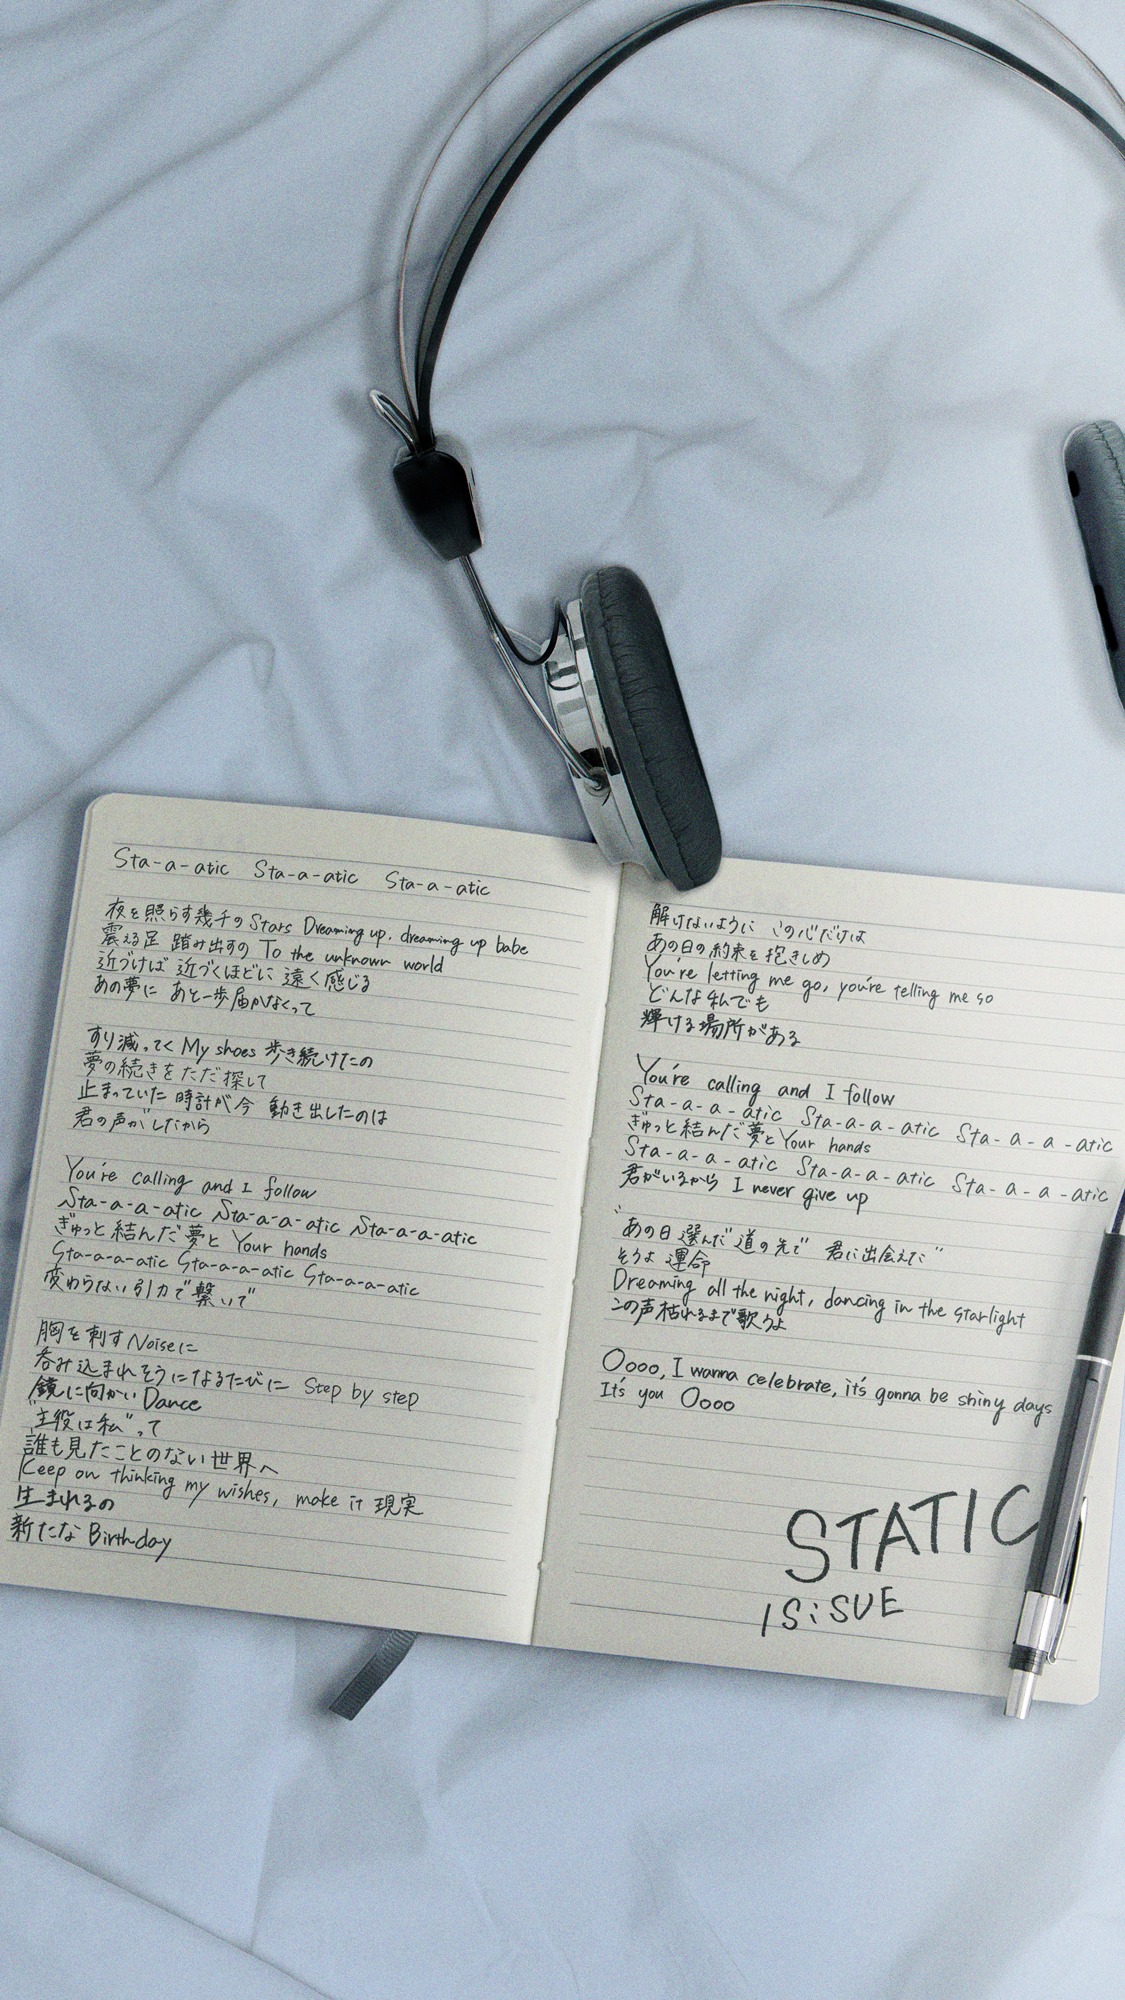 Sta-a-atic Sta-a-atic Sta-a-atic
夜を照らす幾千の Stars Dreaming up, dreaming up babe
震える足 踏み出すの To the unknown world
近づけば 近づくほどに 遠く感じる
あの夢に あと一歩届かなくって
すり減ってく My shoes 歩き続けたの
夢の続きを ただ探して
止まっていた 時計が今 動き出したのは
君の声がしたから
You're calling and I follow
Sta-a-a-atic Sta-a-a-atic Sta-a-a-atic
ぎゅっと結んだ夢と Your hands
Sta-a-a-atic Sta-a-a-atic Sta-a-a-atic
変わらない引力で繋いで
胸を刺す Noiseに
呑み込まれそうになるたびに Step by step
鏡に向かい Dance
"主役は私"って
誰も見たことのない世界へ
Keep on thinking my wishes, make it 現実
生まれるの
新たな Birthday
解けないように この心だけは
あの日の約束を抱きしめ
You're letting me go, you're telling me so
どんな私でも
輝ける場所がある
You're calling and I follow
Sta-a-a-atic Sta-a-a-atic Sta-a-a-atic
ぎゅっと結んだ夢と Your hands
Sta-a-a-atic Sta-a-a-atic Sta-a-a-atic
君がいるから I never give up
"あの日選んだ 道の先で 君に出会えた"
そうよ 運命
Dreaming all the night, dancing in the starlight
この声枯れるまで歌うよ
Oooo, I wanna celebrate, it's gonna be shiny days
It's you Oooo
STATIC
IS:SUE